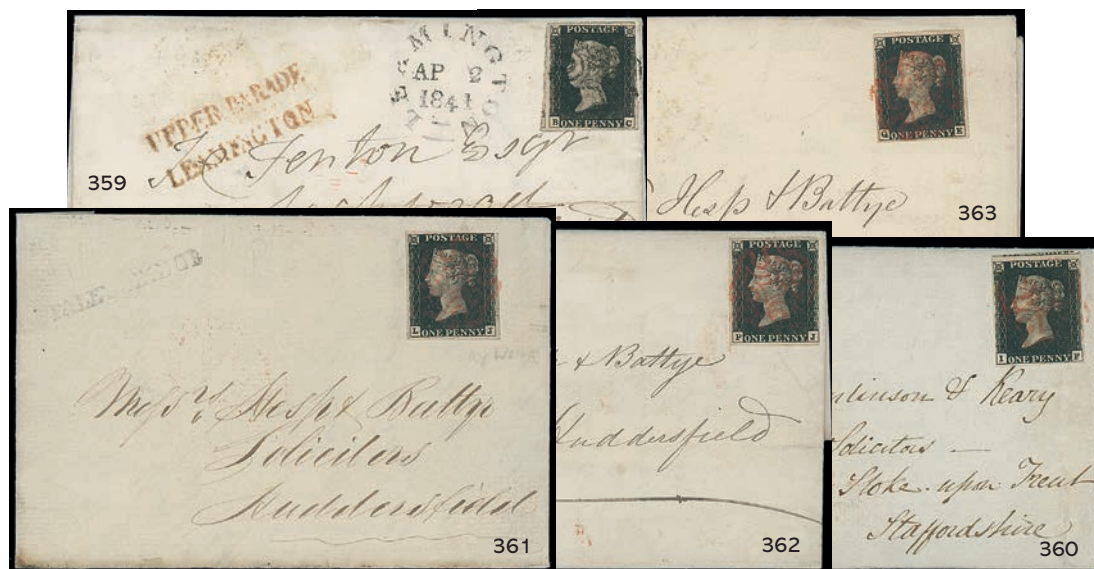 UPPER PARADE
LEAMINGTON
LEAMINGTON
AP 2
1841
POSTAGE
B C
ONE PENNY
Fenton Esqr
359
POSTAGE
G K
ONE PENNY
Hesp & Battye
363
POSTAGE
L J
ONE PENNY
Messrs Hesp & Battye
Solicitors
Huddersfield
361
POSTAGE
F J
ONE PENNY
& Battye
Huddersfield
362
POSTAGE
I F
ONE PENNY
& Keary
Solicitors —
Stoke upon Trent
Staffordshire
360